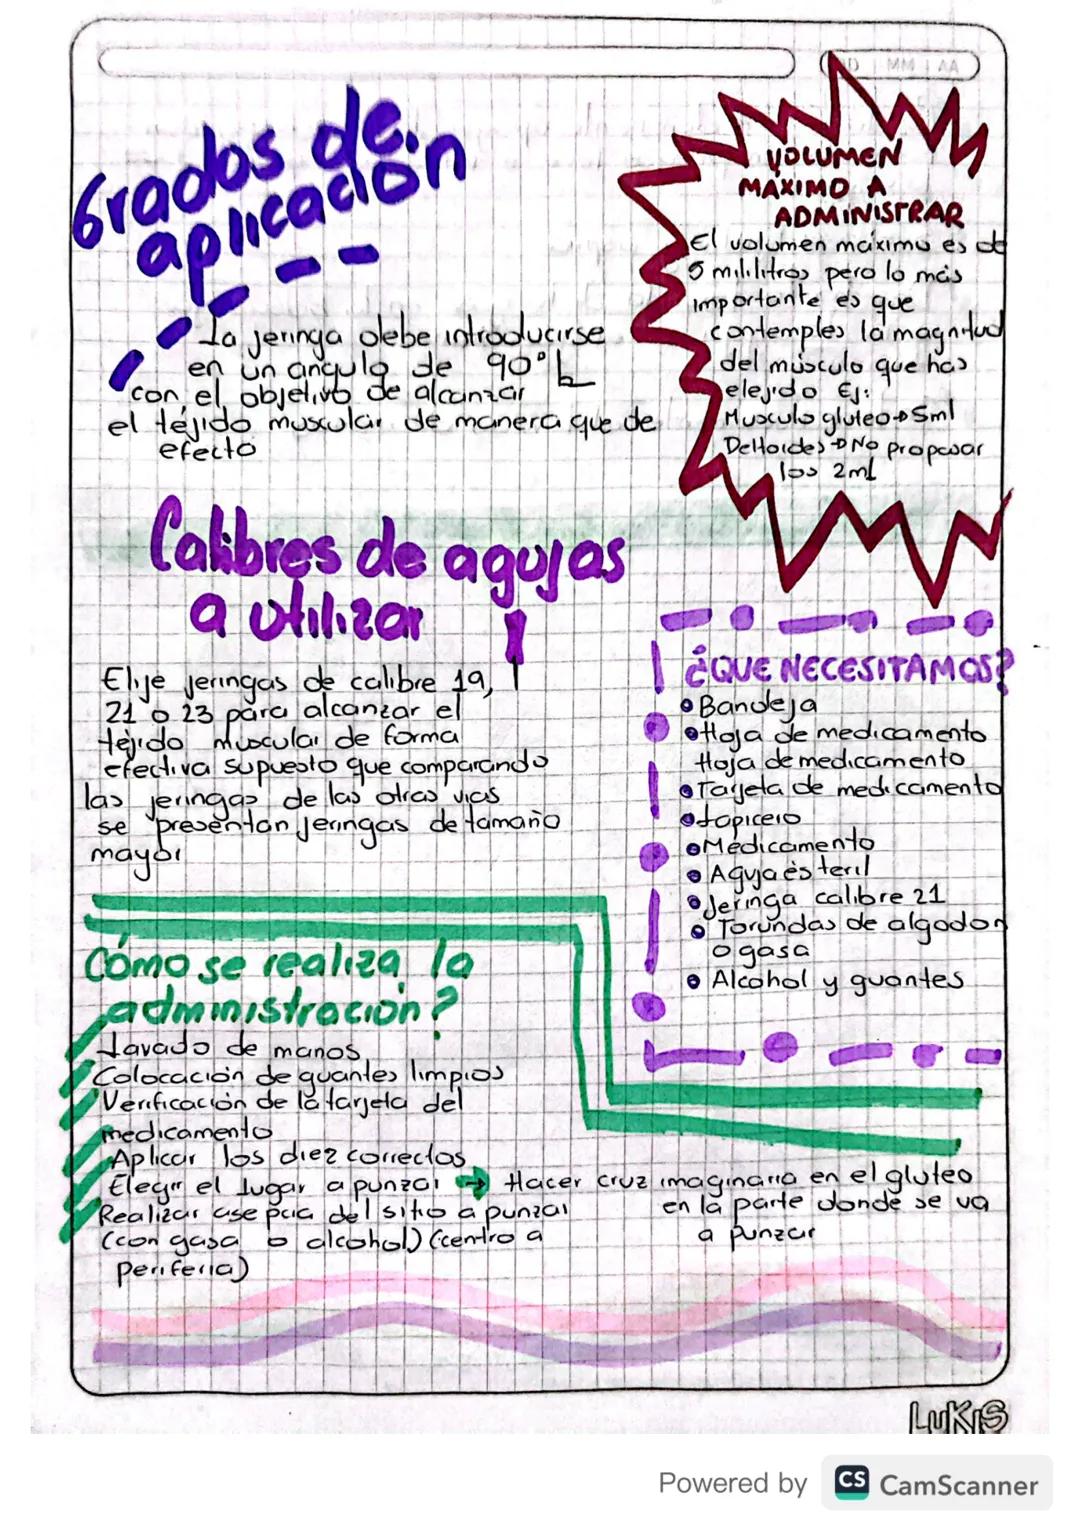 DD MM AA
Grados de
aplicación
La jeringa debe introducirse
en un angulo de 90°
con el objetivo de alcanzar
el tejido muscular de manera que de
efecto
VOLUMEN
MÁXIMO A
ADMINISTRAR
El volumen maximo es de
5 mililitros pero lo más
importante es que
contemples la magnitud
del músculo que has
elejido Ej:
Musculo gluteo→5ml
Deltoides→No propasar
los 2ml
Calibres de agujas
a utilizar
Elije jeringas de calibre 19,
21 o 23 para alcanzar el
tejido muscular de forma
efectiva supuesto que comparando
las jeringas de las otras vias
se presentan jeringas de tamaño
mayor
¿QUE NECESITAMOS?
Bandeja
Hoja de medicamento
Hoja de medicamento
Tarjeta de medicamento
Lapicero
Medicamento
Aguja esteril
Jeringa calibre 21
Torundas de algodon
o gasa
Alcohol y guantes
Cómo se realiza la
administración?
Lavado de manos
Colocación de guantes limpios
Verificación de la tarjeta del
medicamento
Aplicar los diez correctos
Elegir el lugar a punzar → Hacer cruz imaginaria en el gluteo
en la parte donde se va
a punzar
Realizar asepcia del sitio a punzar
(con gasa o alcohol) (centro a
periferia)
LUKIS
Powered by CS CamScanner